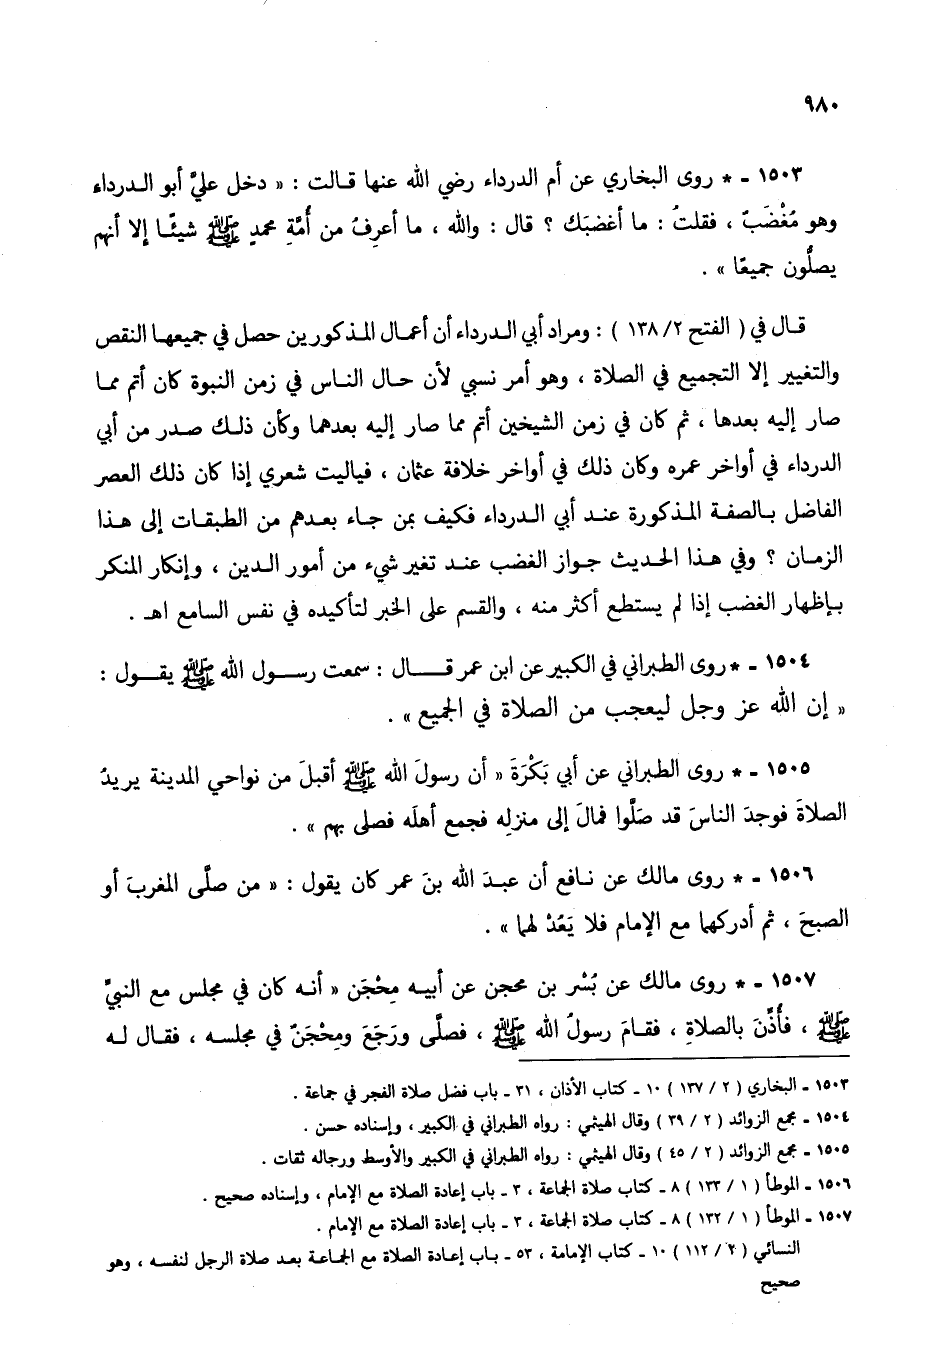 ٩٨٠
١٥٠٣ - * روى البخاري عن أم الدرداء رضي الله عنها قالت : « دخل عليَّ أبو الدرداء
وهو مُغْضَبٌ ، فقلتُ : ما أغضبَك ؟ قال : والله ، ما أعرِفُ من أُمَّةِ محمدٍ ﷺ شيئًا إلا أنهم
يصلُّون جميعًا » .
قال في ( الفتح ١٣٨/٢ ) : ومراد أبي الدرداء أن أعمال المذكورين حصل في جميعها النقص
والتغيير إلا التجميع في الصلاة ، وهو أمر نسبي لأن حال الناس في زمن النبوة كان أتم مما
صار إليه بعدها ، ثم كان في زمن الشيخين أتم مما صار إليه بعدهما وكأن ذلك صدر من أبي
الدرداء في أواخر عمره وكان ذلك في أواخر خلافة عثمان ، فياليت شعري إذا كان ذلك العصر
الفاضل بالصفة المذكورة عند أبي الدرداء فكيف بمن جاء بعدهم من الطبقات إلى هذا
الزمان ؟ وفي هذا الحديث جواز الغضب عند تغير شيء من أمور الدين ، وإنكار المنكر
بإظهار الغضب إذا لم يستطع أكثر منه ، والقسم على الخبر لتأكيده في نفس السامع اهـ .
١٥٠٤ - * روى الطبراني في الكبير عن ابن عمر قال : سمعت رسول الله ﷺ يقول :
« إن الله عز وجل ليعجب من الصلاة في الجميع » .
١٥٠٥ - * روى الطبراني عن أبي بَكْرَةَ « أن رسولَ الله ﷺ أقبلَ من نواحي المدينة يريدُ
الصلاةَ فوجدَ الناسَ قد صَلَّوا فمالَ إلى منزلِه فجمع أهلَه فصلى بهم » .
١٥٠٦ - * روى مالك عن نافع أن عبدَ الله بنَ عمر كان يقول : « من صلَّى المغربَ أو
الصبحَ ، ثم أدركهما مع الإمام فلا يَعُدْ لهما » .
١٥٠٧ - * روى مالك عن بُسْر بن محجن عن أبيه مِحْجَن « أنه كان في مجلس مع النبيِّ
ﷺ ، فأُذِّنَ بالصلاةِ ، فقامَ رسولُ الله ﷺ ، فصلَّى ورَجَعَ ومِحْجَنٌ في مجلسه ، فقال له
١٥٠٣ - البخاري ( ٢ / ١٣٧ ) ١٠ - كتاب الأذان ، ٣١ - باب فضل صلاة الفجر في جماعة .
١٥٠٤ - مجمع الزوائد ( ٢ / ٣٩ ) وقال الهيثمي : رواه الطبراني في الكبير ، وإسناده حسن .
١٥٠٥ - مجمع الزوائد ( ٢ / ٤٥ ) وقال الهيثمي : رواه الطبراني في الكبير والأوسط ورجاله ثقات .
١٥٠٦ - الموطأ ( ١ / ١٣٣ ) ٨ - كتاب صلاة الجماعة ، ٣ - باب إعادة الصلاة مع الإمام ، وإسناده صحيح .
١٥٠٧ - الموطأ ( ١ / ١٣٢ ) ٨ - كتاب صلاة الجماعة ، ٣ - باب إعادة الصلاة مع الإمام .
النسائي ( ٢ / ١١٢ ) ١٠ - كتاب الإمامة ، ٥٣ - باب إعادة الصلاة مع الجماعة بعد صلاة الرجل لنفسه ، وهو
صحيح